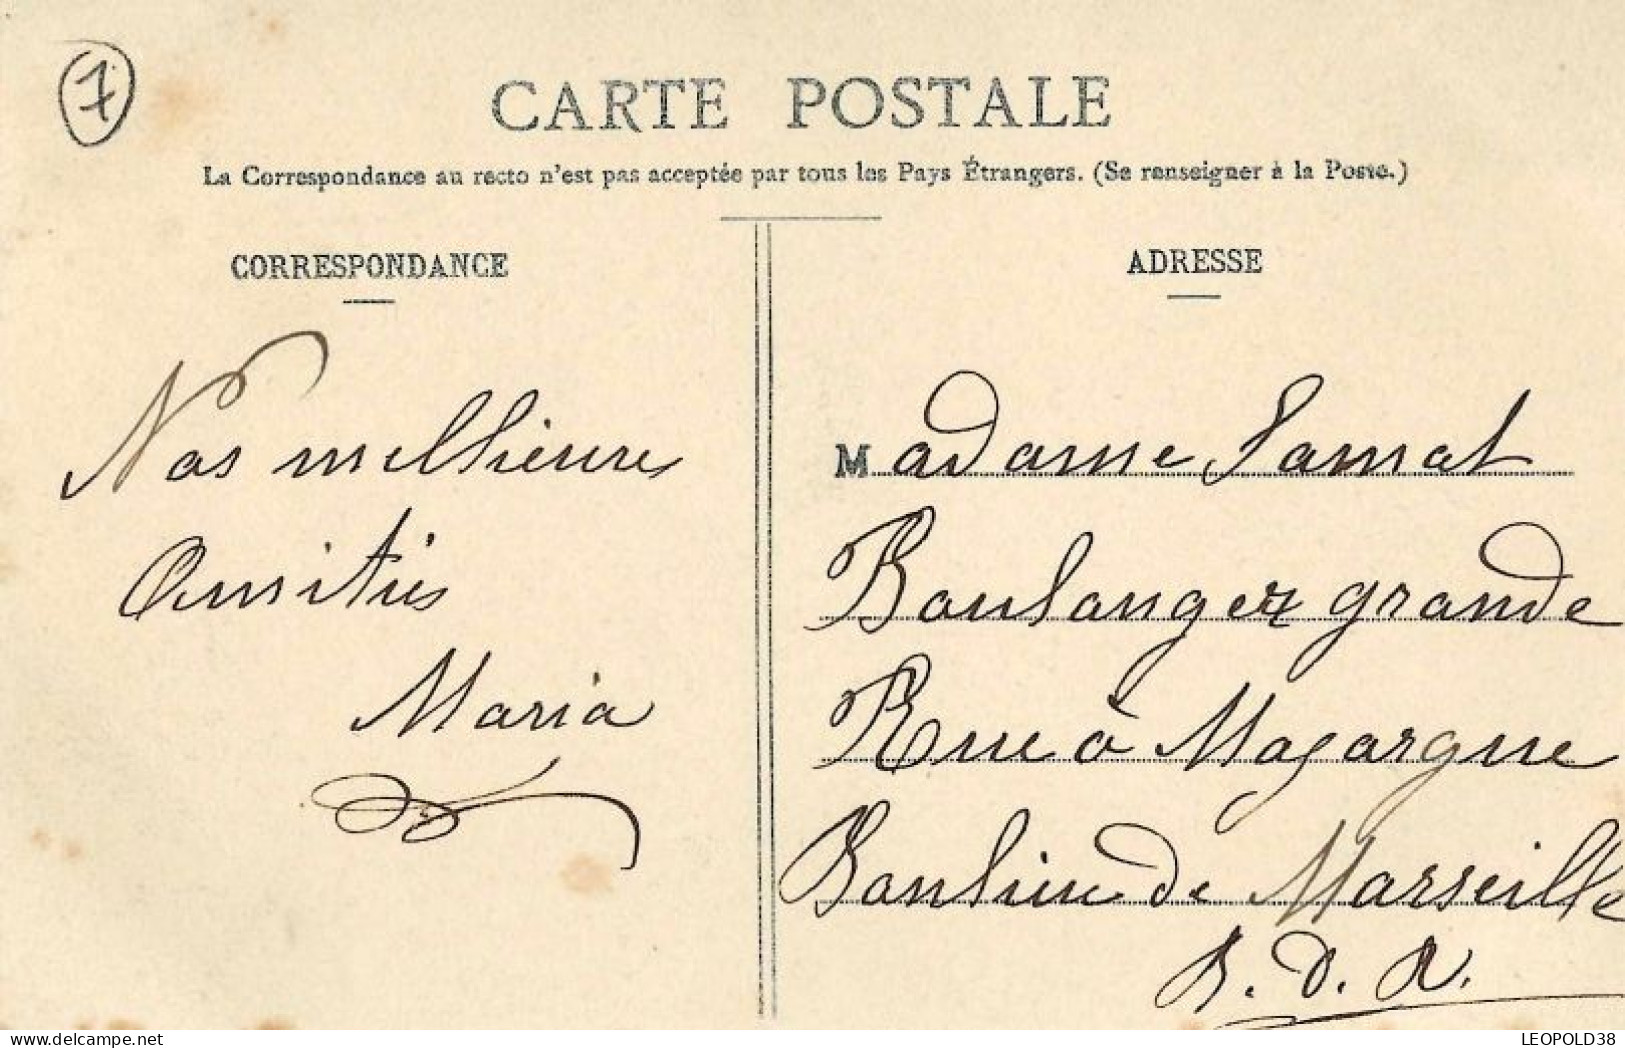 7
CARTE POSTALE
La Correspondance au recto n'est pas acceptée par tous les Pays Étrangers. (Se renseigner à la Poste.)
CORRESPONDANCE
Nos meilleures
Amitiés
Maria
ADRESSE
Madame Jamat
Boulanger grande
Rue à Mazargue
Banlieue de Marseille
B. D. R.
delcampe.net
LEOPOLD38